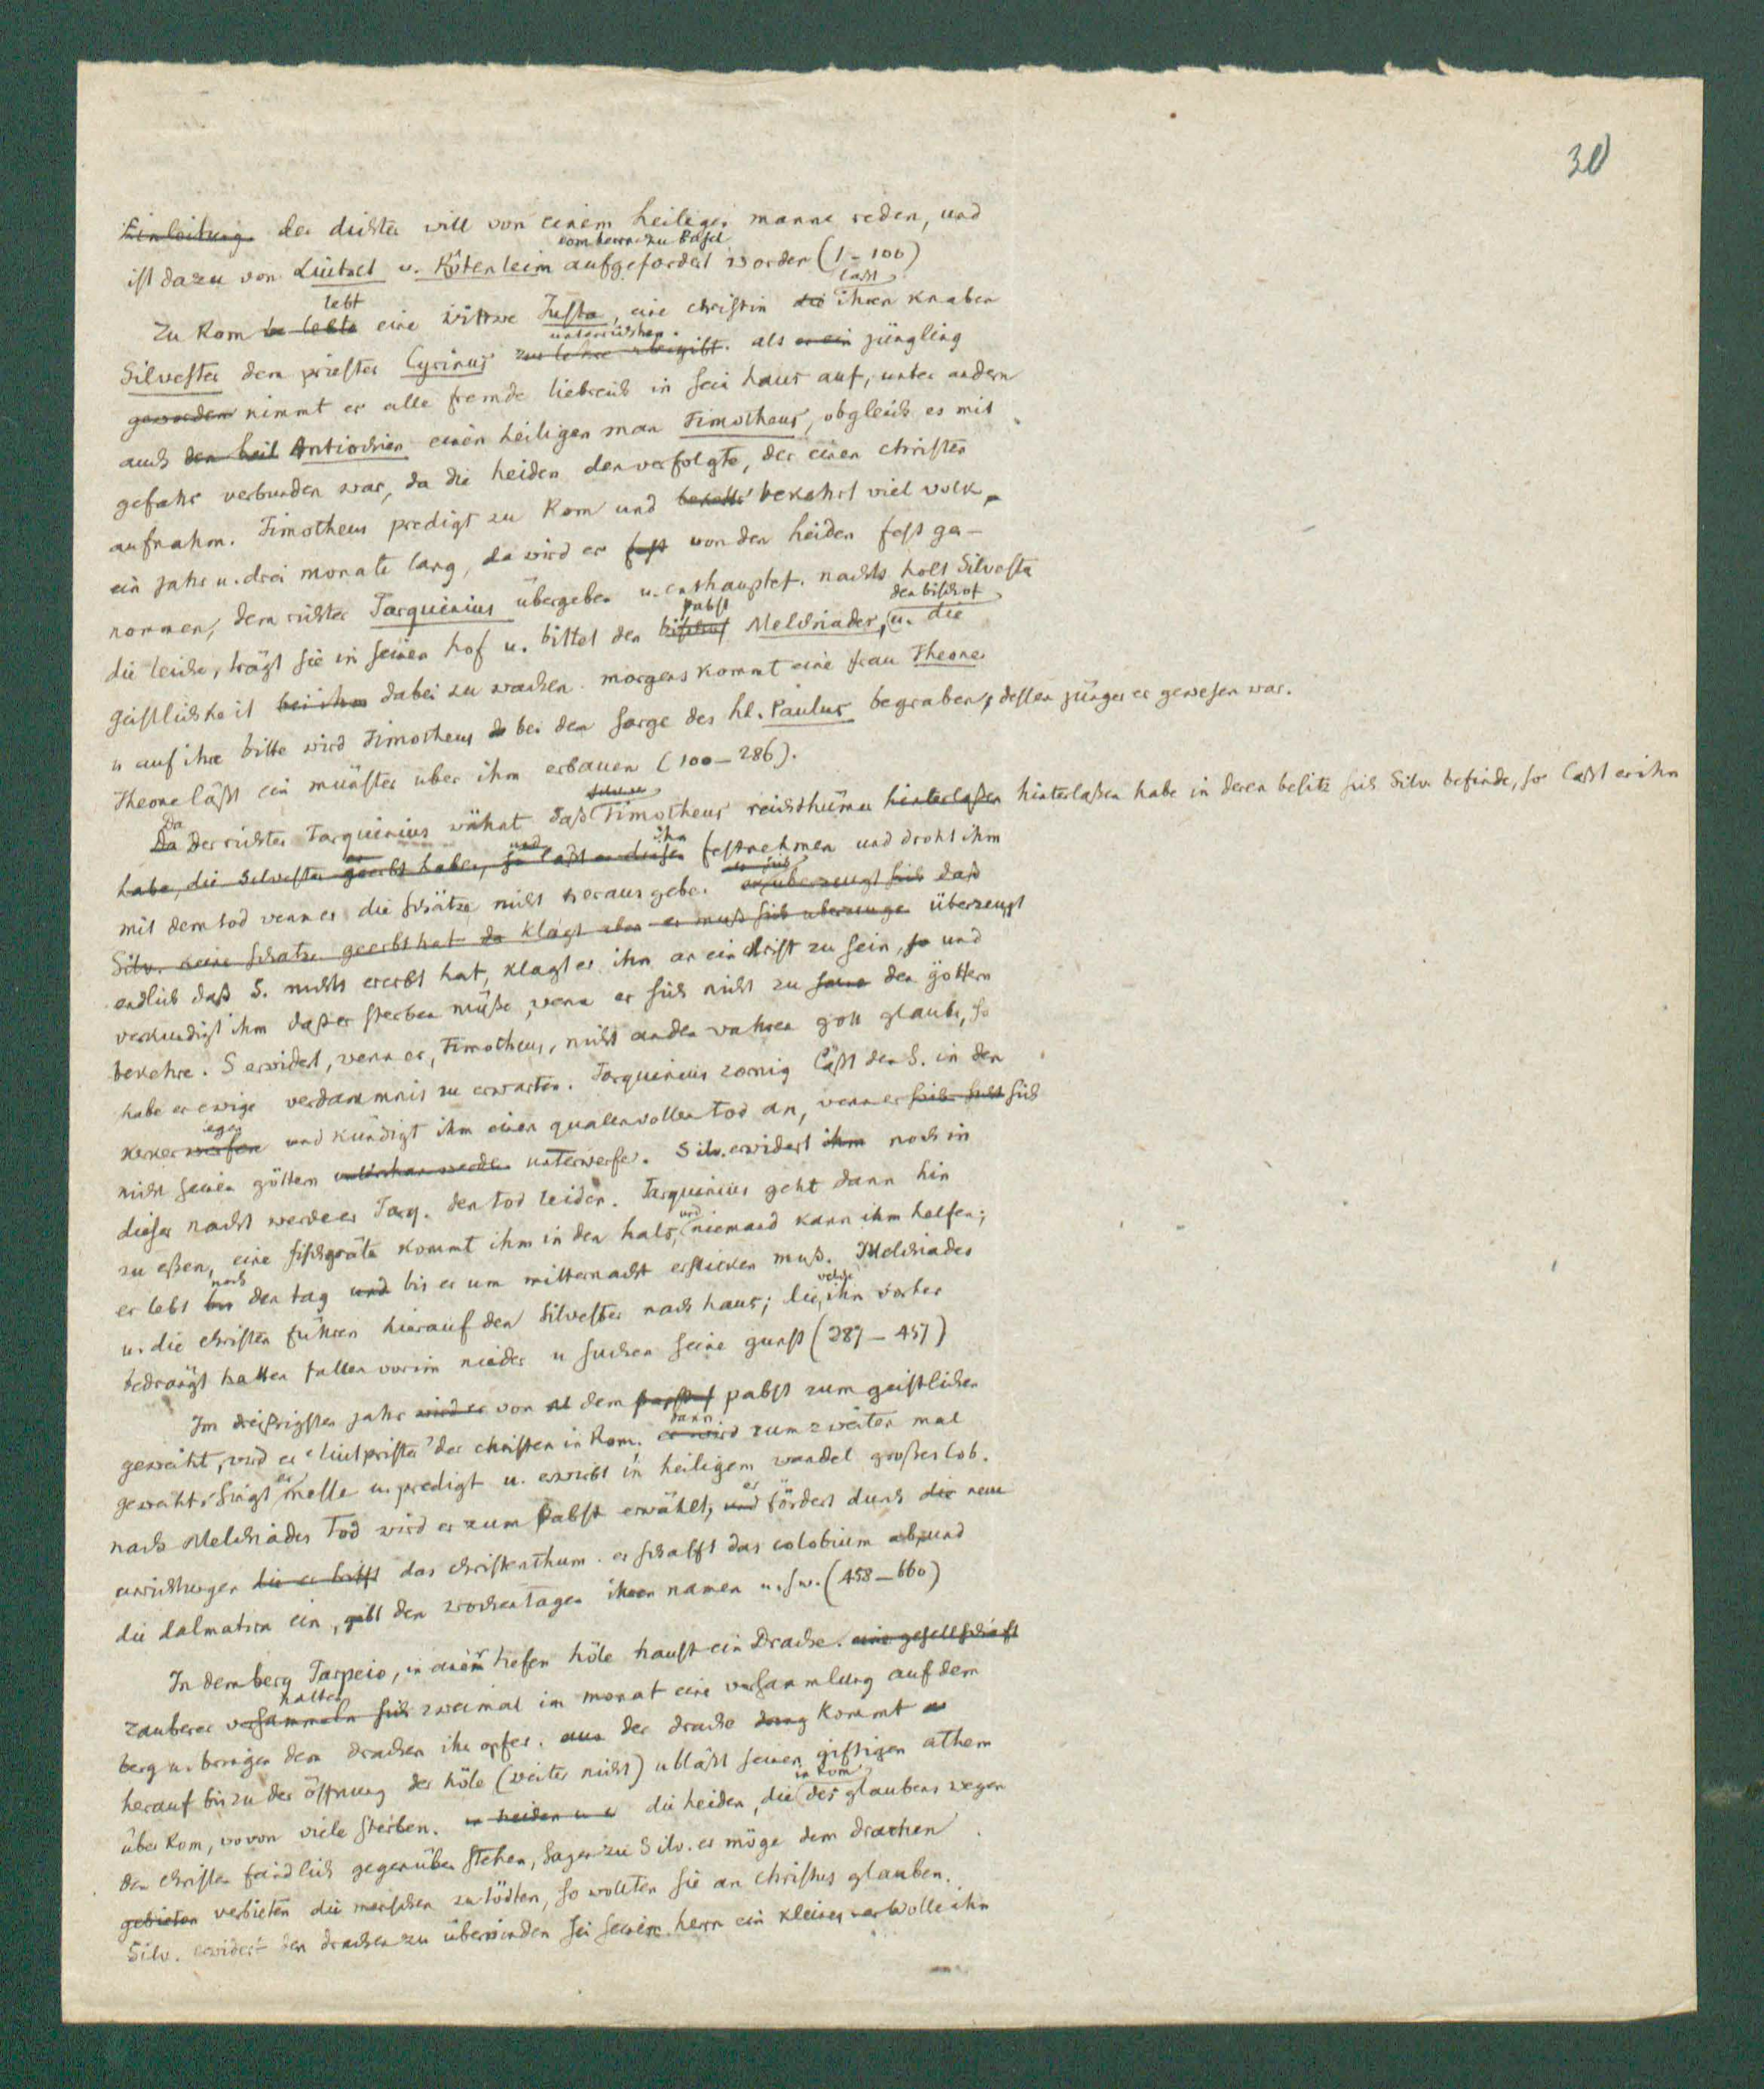 30
Einleitung. der dichter will von einem heiligen manne reden, und
domherrn zu Basel
ist dazu von Liutolt u. Rôtenleim aufgefordert worden (1-100)
lebt läßt
Zu Rom lebte eine wittwe Justa, eine christin die ihren knaben
unterrichten.
Silvester dem priester Cyrinus zur lehre übergibt. als er ein jüngling
geworden nimmt er alle fremde liebreich in sein haus auf, unter andern
auch den heil Antiochien einen heiligen man Timotheus, obgleich es mit
gefahr verbunden war, da die heiden den verfolgte, der einen christen
aufnahm. Timotheus predigt zu Rom und bekehrt bekehrt viel volk,
ein jahr u. drei monate lang, da wird er fest von den heiden fest ge-
nommen, dem richter Tarquinius übergeben u. enthauptet. nachts holt Silvester
pabst den bischof
die leiche, trägt sie in seinen hof u. bittet den bischof Melchiades, u. die
geistlichkeit bei ihm dabei zu wachen. morgens kommt eine frau Theone
u auf ihre bitte wird Timotheus bei dem sarge des hl. Paulus begraben, dessen jünger er gewesen war.
Theone läßt ein münster über ihm erbauen (100-286).
Da
Da der richter Tarquinius wähnt daß Timotheus reichthümer hinterlaßen hinterlaßen habe in deren besitz sich Silv. befinde, so läßt er ihn
und ihn
habe, die Silvester geerbt habe, so läßt er diesen festnehmen und droht ihm
mit dem tod wenn er die schätze nicht heraus gebe. er überzeugt sich daß
Silv. keine schätze geerbt hat da klagt aber er muß sich überzeuge überzeugt
endlich daß S. nichts ererbt hat, klagt er ihn an ein christ zu sein, so und
verkündigt ihm daß er sterben müße, wenn er sich nicht zu seine den göttern
bekehre. S erwidert, wenn er, Timotheus, nicht an den wahren gott glaube, so
habe er ewige verdammnis zu erwarten. Tarquinius zornig läßt den S. in den
legen
kerker werfen und kündigt ihm einen qualenvollen tod an, wenn er sich nicht sich
nicht seinen göttern unterthan werde unterwerfe. Silv. erwidert ihm noch in
dieser nacht werde er Tarq. den tod leiden. Tarquinius geht dann hin
und
zu eßen, eine fischgräte kommt ihm in den hals, niemand kann ihm helfen;
noch
er lebt bis den tag und bis er um mitternacht ersticken muß. Melchiades
welche
u. die christen führen hierauf den Silvester nach haus; die, ihn vorher
bedrängt hatten fallen vor im nieder u suchen seine gunst (287-457)
Im dreißigsten jahr wird er von dem pabst zum geistlichen
dann
geweiht, wird er 'liutprister' der christen in Rom. er wird zum zweiten mal
er
geweiht, singt messe u. predigt u. erwirbt in heiligem wandel großes lob.
er
nach Melchiades Tod wird er zum Pabst erwählt, und fördert durch die neue
einrichtungen die er trifft das christenthum. er schafft das colobium ab und
die dalmatica ein, gibt den wochentagen ihren namen u. s. w. (458-660)
In dem berg Tarpeio, in einer tiefen höle haust ein Drache. eine gesellschaft
halten
zauberer versammeln sich zweimal im monat eine versammlung auf dem
berg u. bringen dem drachen ihr opfer. aus der drache kommt
herauf bis zu der öffnung der höle (weiter nicht) u bläßt seinen giftigen athem
in Rom
über Rom, wovon viele sterben. die heiden, die des glaubens wegen
den christen feindlich gegenüber stehen, sagen zu Silv. er möge dem drachen
gebieten verbieten die menschen zu tödten, so wollten sie an christus glauben.
Silv. erwidert den drachen zu überwinden sei seinem herrn ein kleines er wolle ihn